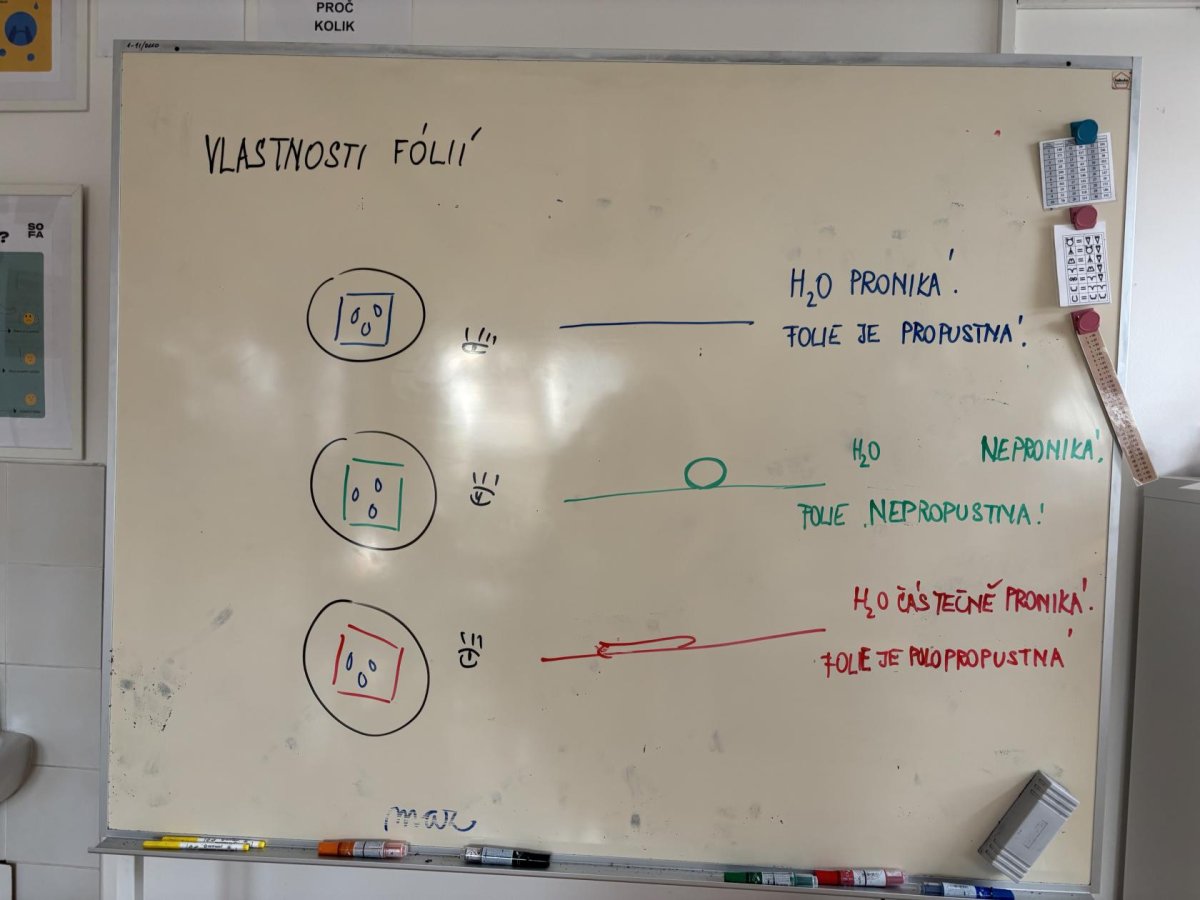 PROČ
KOLIK
SO
FA
?
VLASTNOSTI FÓLIÍ
H₂O PRONIKÁ.
FOLIE JE PROPUSTNÁ.
H₂O NEPRONIKÁ.
FOLIE NEPROPUSTNA!
H₂O ČÁSTEČNĚ PRONIKÁ.
FOLIE JE POLOPROPUSTNÁ
mar